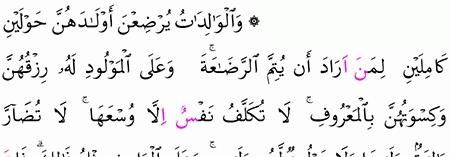 ۞ وَٱلْوَٰلِدَٰتُ يُرْضِعْنَ أَوْلَـٰدَهُنَّ حَوْلَيْنِ
كَامِلَيْنِ لِمَنَ اَرَادَ أَن يُتِمَّ ٱلرَّضَاعَةَ ۚ وَعَلَى ٱلْمَوْلُودِ لَهُۥ رِزْقُهُنَّ
وَكِسْوَتُهُنَّ بِٱلْمَعْرُوفِ ۚ لَا تُكَلَّفُ نَفْسٌ اِلَّا وُسْعَهَا ۚ لَا تُضَآرَّ